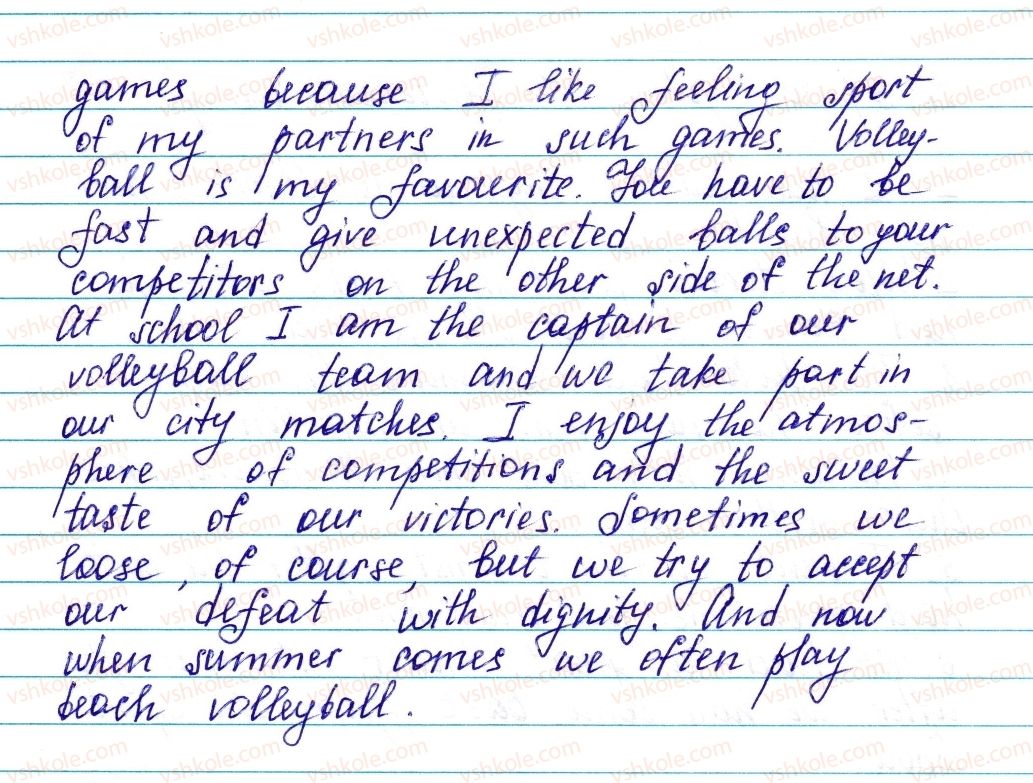 games because I like feeling sport
of my partners in such games. Volley-
ball is my favourite. You have to be
fast and give unexpected balls to your
competitors on the other side of the net.
At school I am the captain of our
volleyball team and we take part in
our city matches. I enjoy the atmos-
phere of competitions and the sweet
taste of our victories. Sometimes we
loose, of course, but we try to accept
our defeat with dignity. And now
when summer comes we often play
beach volleyball.